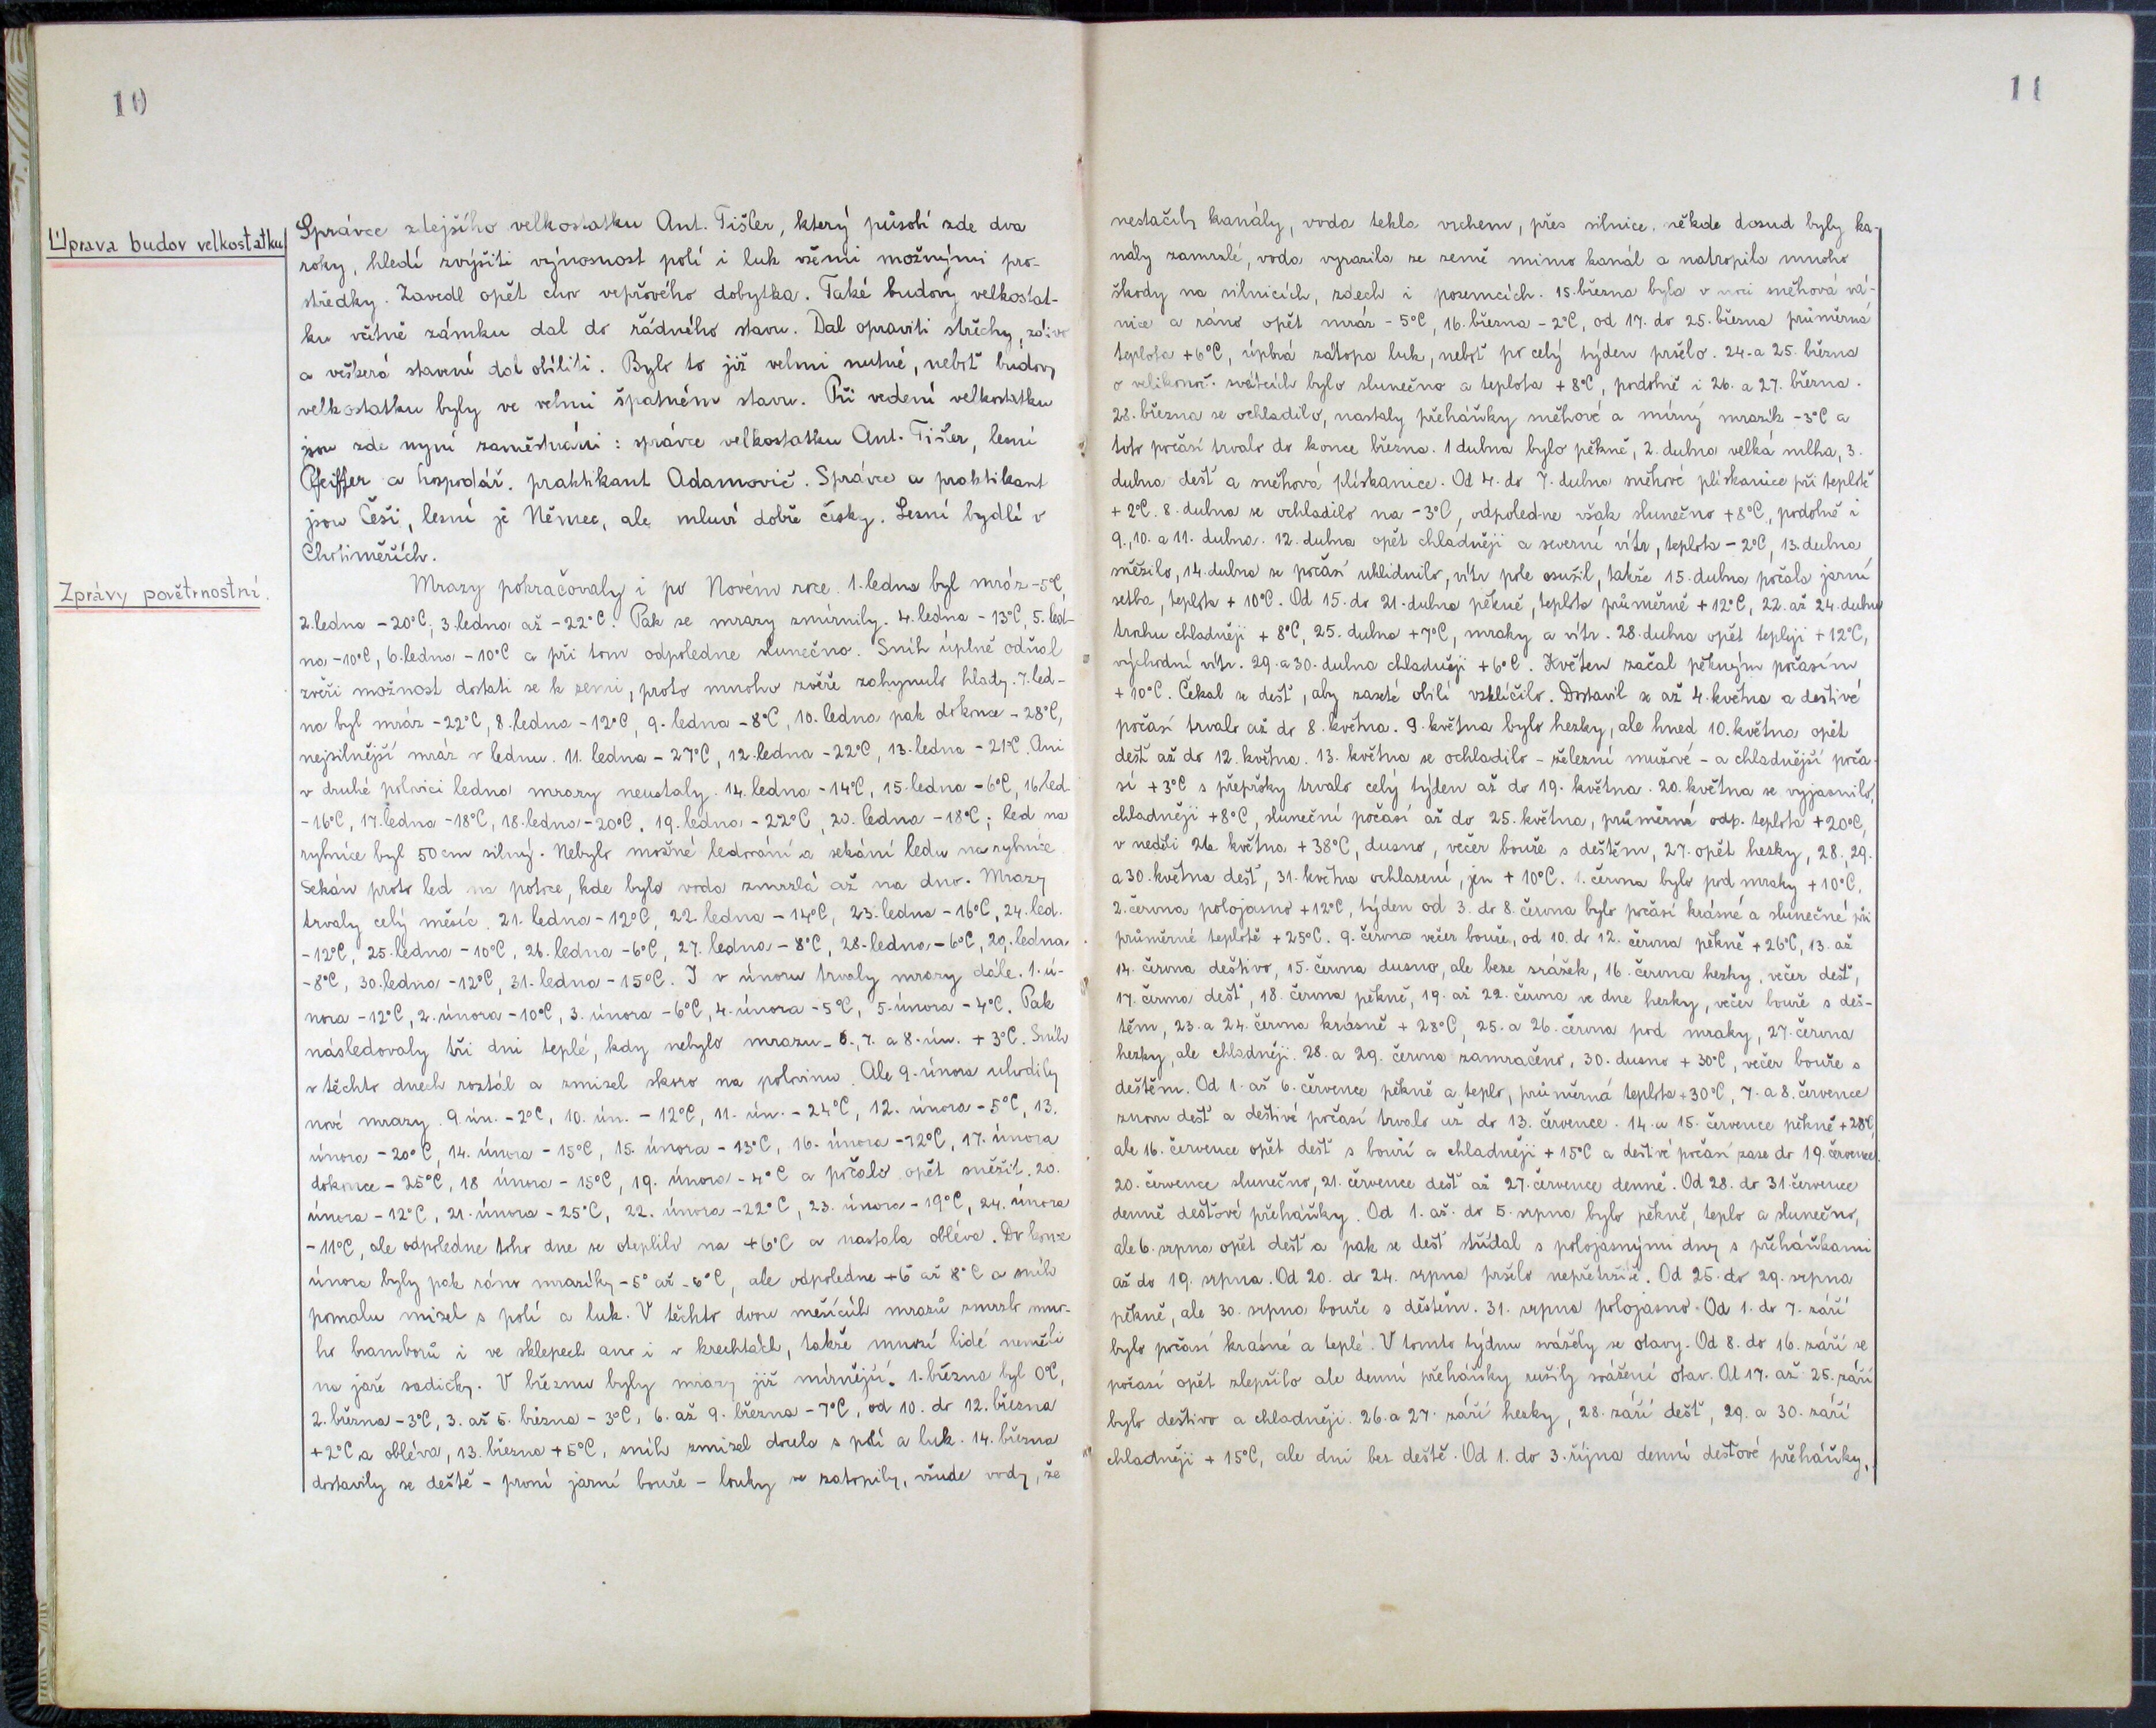 10
Úprava budov velkostatku
Správce zdejšího velkostatku Ant. Tišler, který působí zde dva
roky, hledí zvýšiti výnosnost polí i luk všemi možnými pro-
středky. Zavedl opět chov vepřového dobytka. Také budovy velkostat-
ku včítně zámku dal do řádného stavu. Dal opraviti střechy, zdivo
a veškerá stavení dal obíliti. Bylo to již velmi nutné, neboť budovy
velkostatku byly ve velmi špatném stavu. Při vedení velkostatku
jsou zde nyní zaměstnáni: správce velkostatku Ant. Tišler, lesní
Pfeiffer a hospodář. praktikant Adamovič. Správce a praktikant
jsou Češi, lesní je Němec, ale mluví dobře česky. Lesní bydlí v
Chotiměřích.
Zprávy povětrnostní.
Mrazy pokračovaly i po Novém roce. 1. ledna byl mráz -5°C,
2. ledna -20°C, 3. ledna až -22°C. Pak se mrazy zmírnily. 4. ledna -13°C, 5. led-
na -10°C, 6. ledna -10°C a při tom odpoledne slunečno. Sníh úplně odňal
zvěři možnost dostati se k zemi, proto mnoho zvěře zahynulo hlady. 7. led-
na byl mráz -22°C, 8. ledna -12°C, 9. ledna -8°C, 10. ledna pak dokonce -28°C,
nejsilnější mráz v lednu. 11. ledna -27°C, 12. ledna -22°C, 13. ledna -21°C. Ani
v druhé polovici ledna mrazy neustaly. 14. ledna -14°C, 15. ledna -6°C, 16 led.
-16°C, 17. ledna -18°C, 18. ledna -20°C, 19. ledna -22°C, 20. ledna -18°C; led na
rybníce byl 50 cm silný. Nebylo možné ledování a sekání ledu na rybníce.
Sekán proto led na potoce, kde byla voda zmrzlá až na dno. Mrazy
trvaly celý měsíc. 21. ledna -12°C, 22. ledna -14°C, 23. ledna -16°C, 24. led.
-12°C, 25. ledna -10°C, 26. ledna -6°C, 27. ledna -8°C, 28. ledna -6°C, 29. ledna
-8°C, 30. ledna -12°C, 31. ledna -15°C. I v únoru trvaly mrazy dále. 1. ú-
nora -12°C, 2. února -10°C, 3. února -6°C, 4. února -5°C, 5. února -4°C. Pak
následovaly tři dni teplé, kdy nebylo mrazu - 6., 7. a 8. ún. +3°C. Sníh
v těchto dnech roztál a zmizel skoro na polovinu. Ale 9. února uhodily
nové mrazy. 9. ún. -2°C, 10. ún. -12°C, 11. ún. -24°C, 12. února -5°C, 13.
února -20°C, 14. února -15°C, 15. února -13°C, 16. února -12°C, 17. února
dokonce -25°C, 18 února -15°C, 19. února -4°C a počalo opět sněžit. 20.
února -12°C, 21. února -25°C, 22. února -22°C, 23. února -19°C, 24. února
-11°C, ale odpoledne toho dne se oteplilo na +6°C a nastala obleva. Do konce
února byly pak ráno mrazíky -5° až -6°C, ale odpoledne +6 až 8°C a sníh
pomalu mizel s polí a luk. V těchto dvou měsících mrazů zmrzlo mno-
ho bramborů i ve sklepech ano i v krechtách, takže mnozí lidé neměli
na jaře sadičky. V březnu byly mrazy již mírnější. 1. března byl 0°C,
2. března -3°C, 3. až 5. března -3°C, 6. až 9. března -7°C, od 10. do 12. března
+2°C a obleva, 13. března +5°C, sníh zmizel docela s polí a luk. 14. března
dostavily se deště - první jarní bouře - louky se zatopily, všude vody, že
11
nestačily kanály, voda tekla vrchem, přes silnice, někde dosud byly ka-
nály zamrzlé, voda vyrazila ze země mimo kanál a natropila mnoho
škody na silnicích, zdech i pozemcích. 15. března byla v noci sněhová vá-
nice a ráno opět mráz -5°C, 16. března -2°C, od 17. do 25. března průměrná
teplota +6°C, úplná zátopa luk, neboť po celý týden pršelo. 24. a 25. března
o velikonoč. svátcích bylo slunečno a teplota +8°C, podobně i 26. a 27. března.
28. března se ochladilo, nastaly přeháňky sněhové a mírný mrazík -3°C a
toto počasí trvalo do konce března. 1 dubna bylo pěkně, 2. dubna velká mlha, 3.
dubna dešť a sněhová plískanice. Od 4. do 7. dubna sněhové plískanice při teplotě
+2°C. 8. dubna se ochladilo na -3°C, odpoledne však slunečno +8°C, podobně i
9., 10. a 11. dubna. 12. dubna opět chladněji a severní vítr, teplota -2°C, 13. dubna
sněžilo, 14. dubna se počasí uklidnilo, vítr pole osušil, takže 15. dubna počala jarní
setba, teplota +10°C. Od 15. do 21. dubna pěkně, teplota průměrně +12°C, 22. až 24. dubna
trochu chladněji +8°C, 25. dubna +7°C, mraky a vítr. 28. dubna opět tepleji +12°C,
východní vítr. 29. a 30. dubna chladněji +6°C. Květen začal pěkným počasím
+10°C. Čekal se dešť, aby zaseté obilí vzklíčilo. Dostavil se až 4. května a deštivé
počasí trvalo až do 8. května. 9. května bylo hezky, ale hned 10. května opět
dešť až do 12. května. 13. května se ochladilo - železní mužové - a chladnější poča-
sí +3°C s přepršky trvalo celý týden až do 19. května. 20. května se vyjasnilo,
chladněji +8°C, sluneční počasí až do 25. května, průměrná odp. teplota +20°C,
v neděli 26. května +38°C, dusno, večer bouře s deštěm, 27. opět hezky, 28., 29.
a 30. května dešť, 31. května ochlazení, jen +10°C. 1. června bylo pod mraky +10°C,
2. června polojasno +12°C, týden od 3. do 8. června bylo počasí krásné a slunečné při
průměrné teplotě +25°C. 9. června večer bouře, od 10. do 12. června pěkně +26°C, 13. až
14. června deštivo, 15. června dusno, ale beze srážek, 16. června hezky, večer dešť,
17. června dešť, 18. června pěkně, 19. až 22. června ve dne hezky, večer bouře s deš-
těm, 23. a 24. června krásně +28°C, 25. a 26. června pod mraky, 27. června
hezky, ale chladněji. 28. a 29. června zamračeno, 30. dusno +30°C, večer bouře s
deštěm. Od 1. až 6. července pěkně a teplo, průměrná teplota +30°C, 7. a 8. července
znovu dešť a deštivé počasí trvalo až do 13. července. 14. a 15. července pěkně +28°C,
ale 16. července opět dešť s bouří a chladněji +15°C a deštivé počasí zase do 19. července.
20. července slunečno, 21. července dešť až 27. července denně. Od 28. do 31. července
denně dešťové přeháňky. Od 1. až do 5. srpna bylo pěkně, teplo a slunečno,
ale 6. srpna opět dešť a pak se dešť střídal s polojasnými dny s přeháňkami
až do 19. srpna. Od 20. do 24. srpna pršelo nepřetržitě. Od 25. do 29. srpna
pěkně, ale 30. srpna bouře s děštěm. 31. srpna polojasno. Od 1. do 7. září
bylo počasí krásné a teplé. V tomto týdnu svážely se otavy. Od 8. do 16. září se
počasí opět zlepšilo ale denní přeháňky rušily svážení otav. Od 17. až 25. září
bylo deštivo a chladněji. 26. a 27. září hezky, 28. září dešť, 29. a 30. září
chladněji +15°C, ale dni bez deště. Od 1. do 3. října denní dešťové přeháňky,